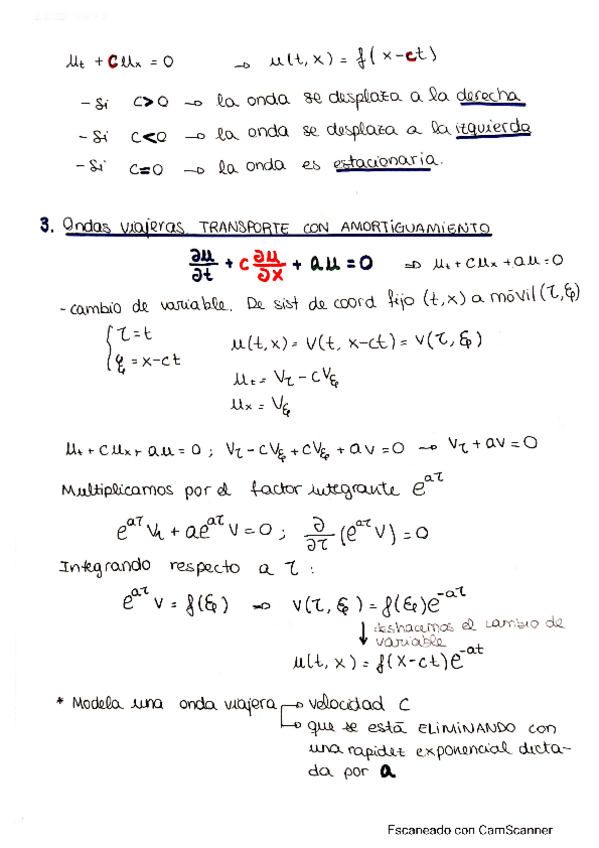 u_t + c u_x = 0 → u(t,x) = f(x-ct)
- Si c>0 → la onda se desplaza a la derecha
- Si c<0 → la onda se desplaza a la izquierda
- Si c=0 → la onda es estacionaria.
3. Ondas viajeras. TRANSPORTE CON AMORTIGUAMIENTO
∂u/∂t + c ∂u/∂x + au = 0 ⇒ u_t + cu_x + au = 0
- cambio de variable. De sist de coord fijo (t,x) a móvil (τ,ξ)
{ τ = t
ξ = x-ct
u(t,x) = v(t, x-ct) = v(τ,ξ)
u_t = v_τ - cv_ξ
u_x = v_ξ
u_t + cu_x + au = 0 ; v_τ - cv_ξ + cv_ξ + av = 0 → v_τ + av = 0
Multiplicamos por el factor integrante e^{aτ}
e^{aτ} v_τ + ae^{aτ} v = 0 ; ∂/∂τ (e^{aτ} v) = 0
Integrando respecto a τ :
e^{aτ} v = f(ξ) ⇒ v(τ,ξ) = f(ξ)e^{-aτ}
↓ deshacemos el cambio de
variable
u(t,x) = f(x-ct)e^{-at}
* Modela una onda viajera → velocidad c
→ que se está ELIMINANDO con
una rapidez exponencial dicta-
da por a
Escaneado con CamScanner